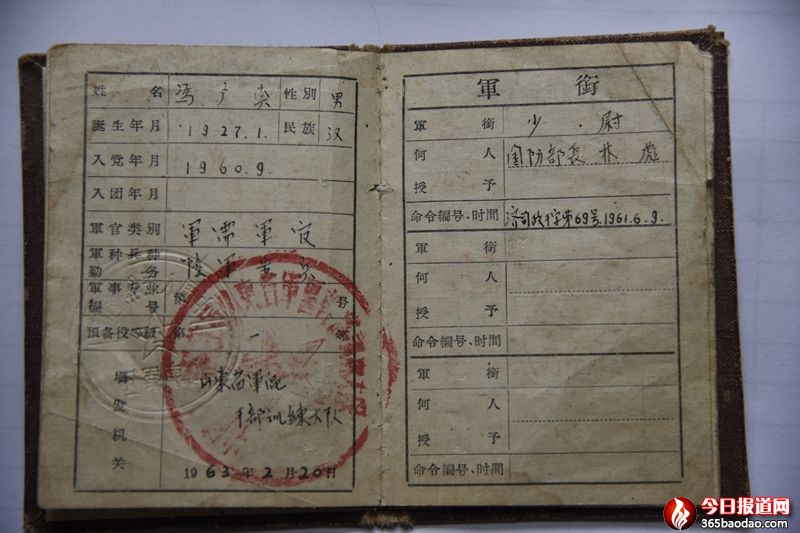 姓名 冯广 性別 男
誕生年月 1927.1. 民族 汉
入党年月 1960.9.
入团年月
軍官类別 軍需軍官
軍种兵种
勤务 陸軍
軍事专业
編号 第 号
預备役等級 第一
填发机关
山東省軍區
干部訓練大队
1963年2月20日
軍銜
軍銜 少尉
何人授予 国防部長林彪
命令編号、时間 济司政干字第69号.1961.6.9.
軍銜
何人
授予
命令編号、时間
軍銜
何人
授予
命令編号、时間
今日报道网
365baodao.com